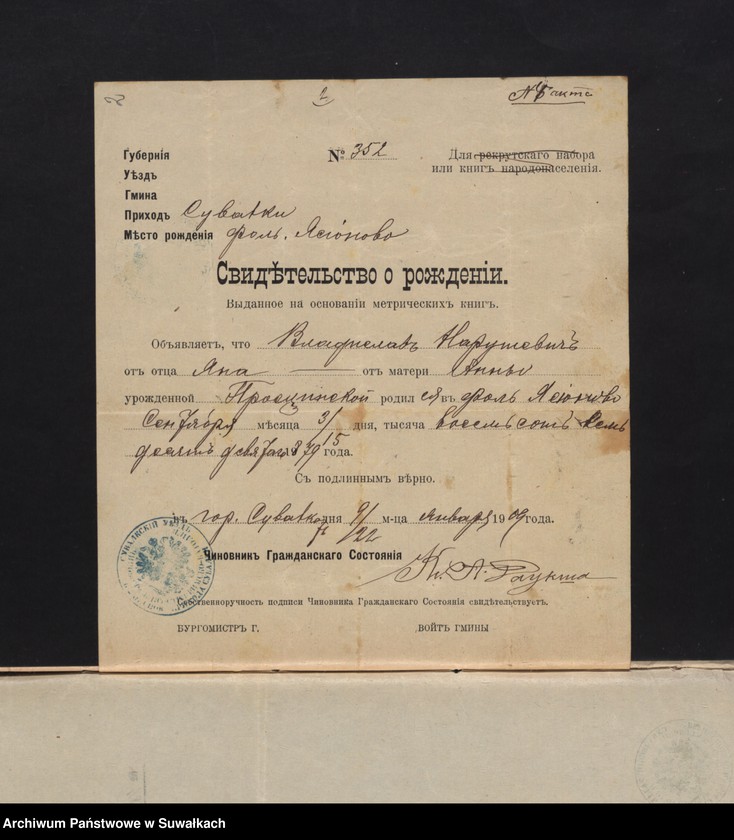 2
№ акта
Губернія
№ 352
Для рекрутскаго набора
Уѣздъ
или книгъ народонаселенія.
Гмина
Приходъ Сувалки
Мѣсто рожденія фоль. Ясіоново
Свидѣтельство о рожденіи.
Выданное на основаніи метрическихъ книгъ.
Объявляетъ, что Владиславъ Нарушевичъ
отъ отца Яна отъ матери Анны
урожденной родился въ фоль Ясіоново
Сентября мѣсяца 3/15 дня, тысяча восемьсотъ семь
десятъ девятаго 879 года.
Съ подлиннымъ вѣрно.
въ гор. Сувалкахъ дня 9/22 м-ца января 1909 года.
Чиновникъ Гражданскаго Состоянія
Собственноручность подписи Чиновника Гражданскаго Состоянія свидѣтельствуетъ.
БУРГОМИСТР Г.
ВОЙТЪ ГМИНЫ
Archiwum Państwowe w Suwałkach